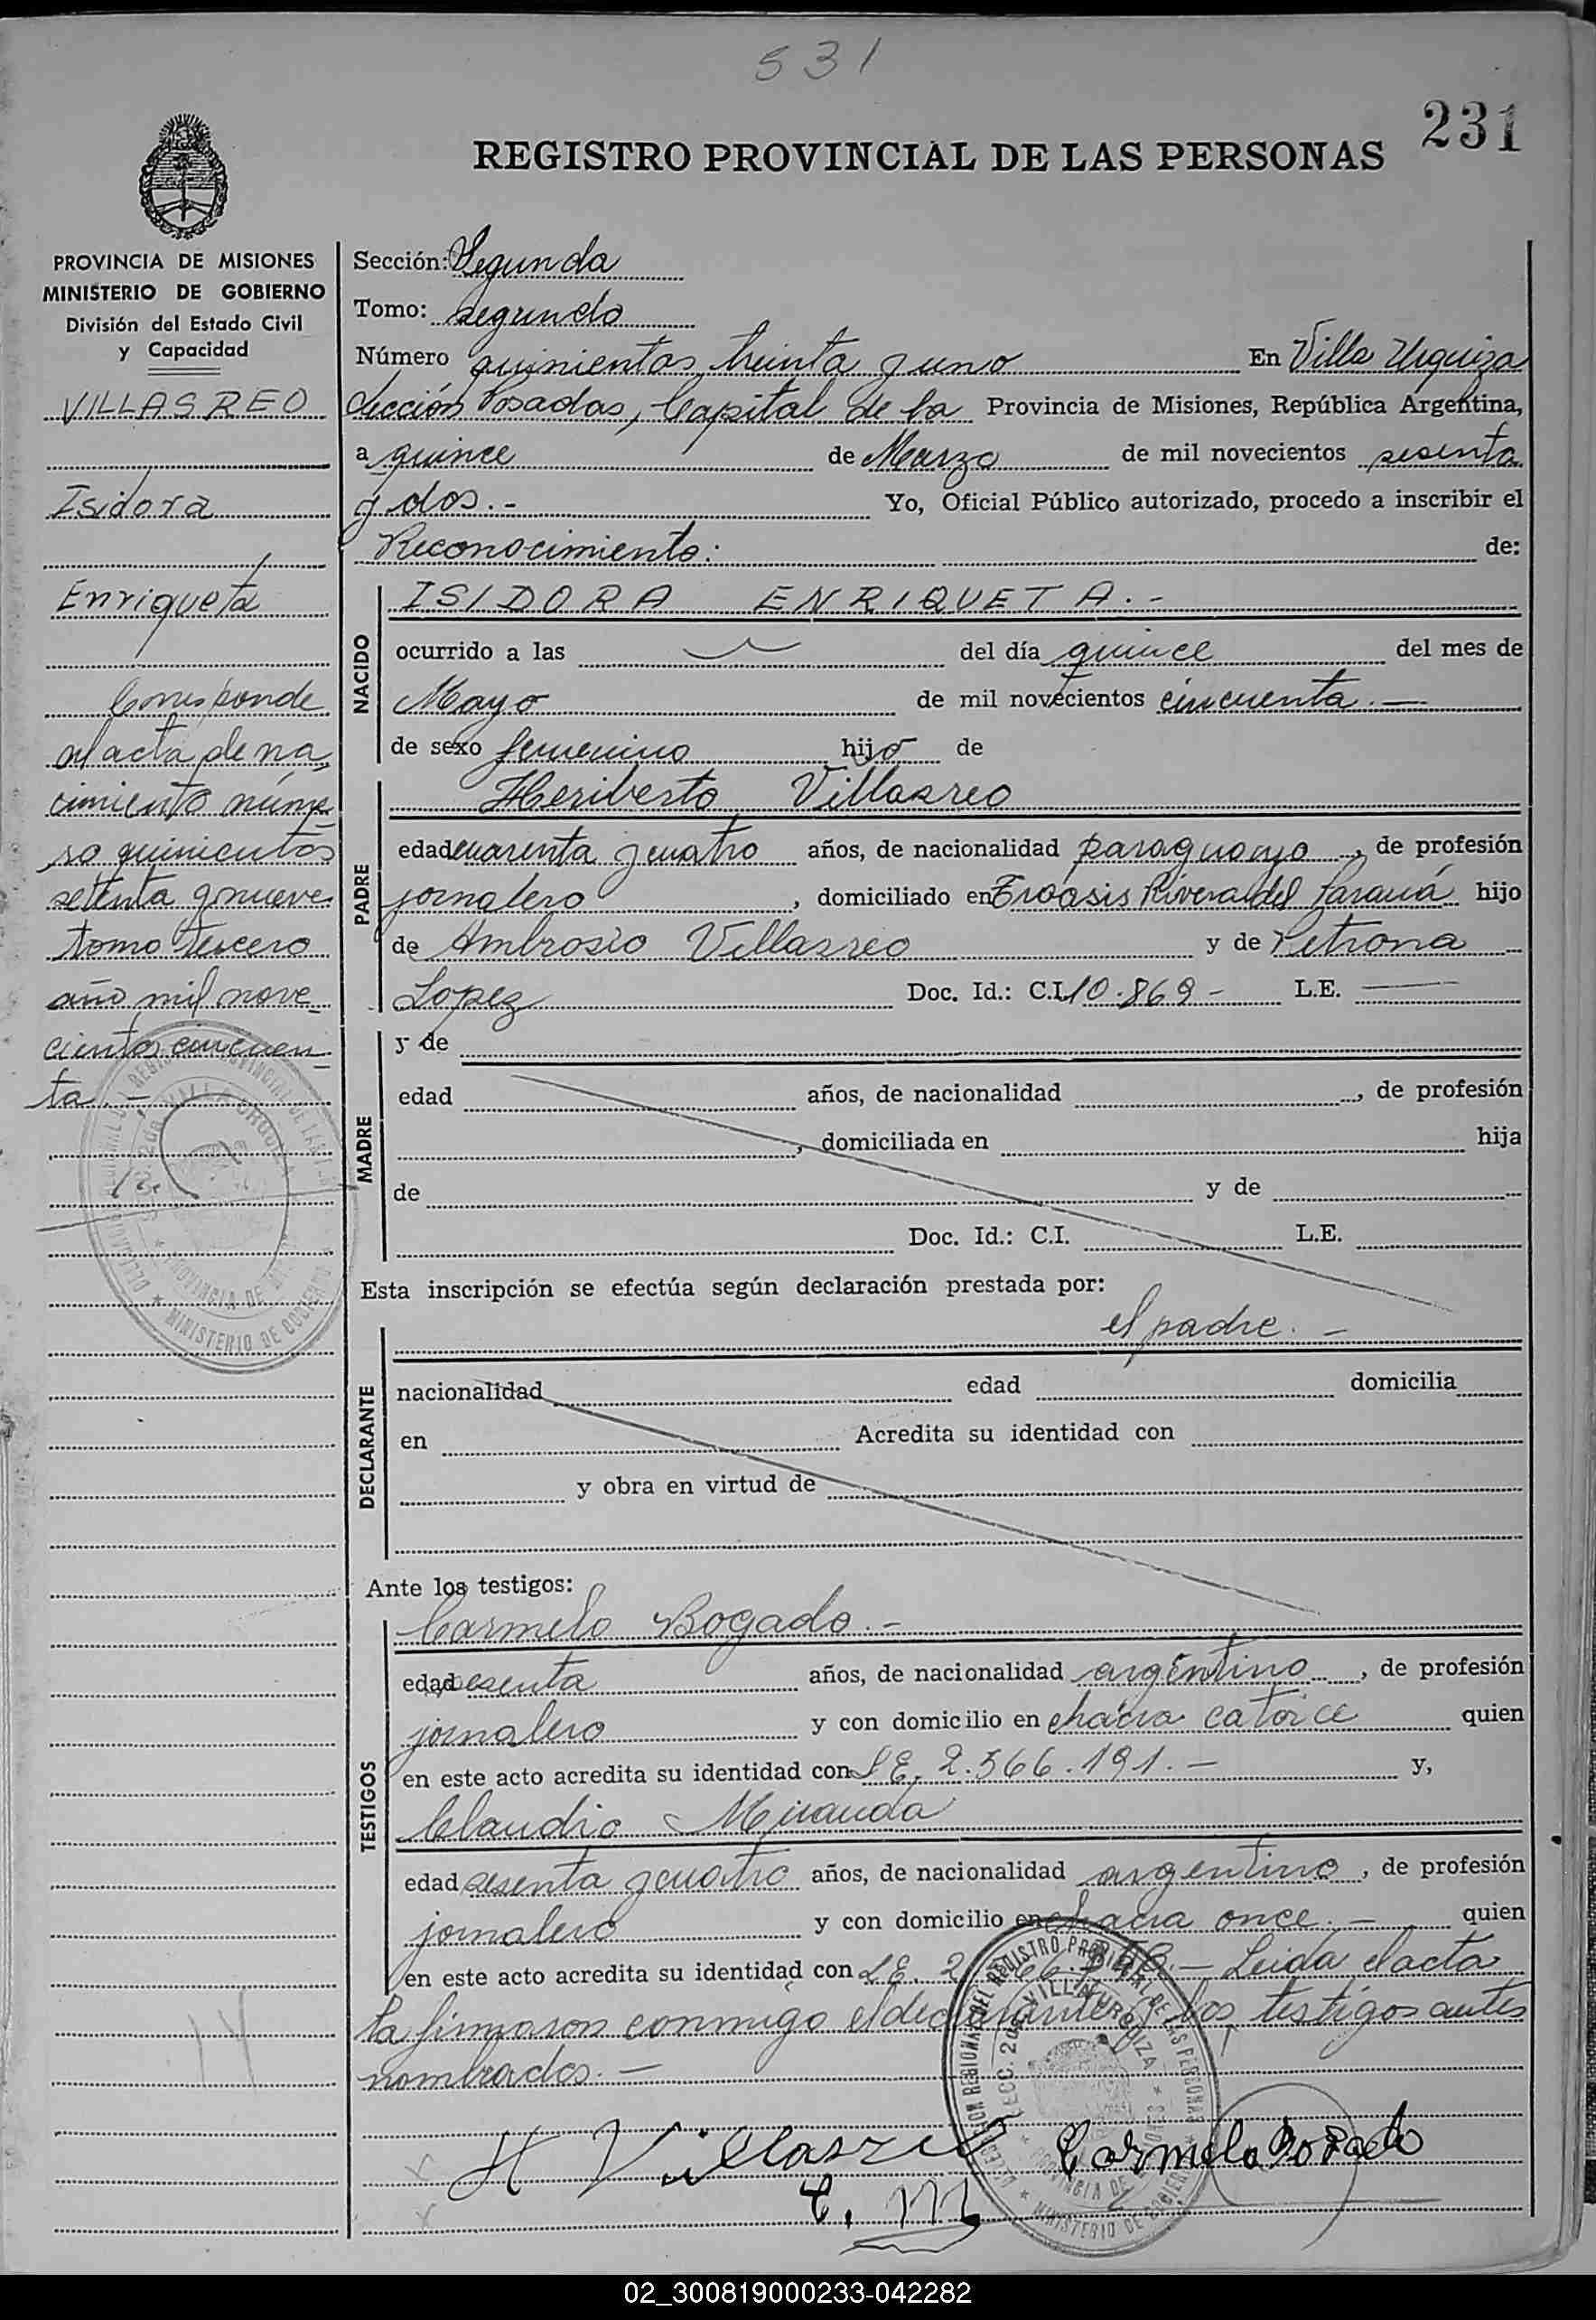 531
231
REGISTRO PROVINCIAL DE LAS PERSONAS
PROVINCIA DE MISIONES
MINISTERIO DE GOBIERNO
División del Estado Civil
y Capacidad
VILLASREO
Isidora
Enriqueta
Corresponde
al acta de na
cimiento núme
ro quinientos
setenta y nueve
tomo tercero
año mil nove
cientos cincuen
ta.-
Sección: Segunda
Tomo: segundo
Número quinientos treinta y uno En Villa Urquiza
Sección Posadas, Capital de la Provincia de Misiones, República Argentina,
a quince de Marzo de mil novecientos sesenta
y dos.- Yo, Oficial Público autorizado, procedo a inscribir el
Reconocimiento: de:
NACIDO
ISIDORA ENRIQUETA.-
ocurrido a las del día quince del mes de
Mayo de mil novecientos cincuenta.-
de sexo femenino hijo de
PADRE
Heriberto Villasreo
edad cuarenta y cuatro años, de nacionalidad paraguayo, de profesión
jornalero, domiciliado en Rivera del Paraná hijo
de Ambrosio Villasreo y de Petrona
Lopez Doc. Id.: C.I. 10.869- L.E.
MADRE
y de
edad años, de nacionalidad , de profesión
, domiciliada en hija
de y de
Doc. Id.: C.I. L.E.
Esta inscripción se efectúa según declaración prestada por:
el padre.-
DECLARANTE
nacionalidad edad domicilia
en Acredita su identidad con
y obra en virtud de
Ante los testigos:
TESTIGOS
Carmelo Bogado.-
edad sesenta años, de nacionalidad argentino, de profesión
jornalero y con domicilio en chacra catorce quien
en este acto acredita su identidad con L.E. 2.566.191.- y,
Claudio Miranda
edad sesenta y cuatro años, de nacionalidad argentino, de profesión
jornalero y con domicilio en chacra once.- quien
en este acto acredita su identidad con L.E. Leida el acta
la firmaron conmigo el declarante y los testigos antes
nombrados.-
H Villasreo
Carmelo Bogado
C. M
02_300819000233-042282